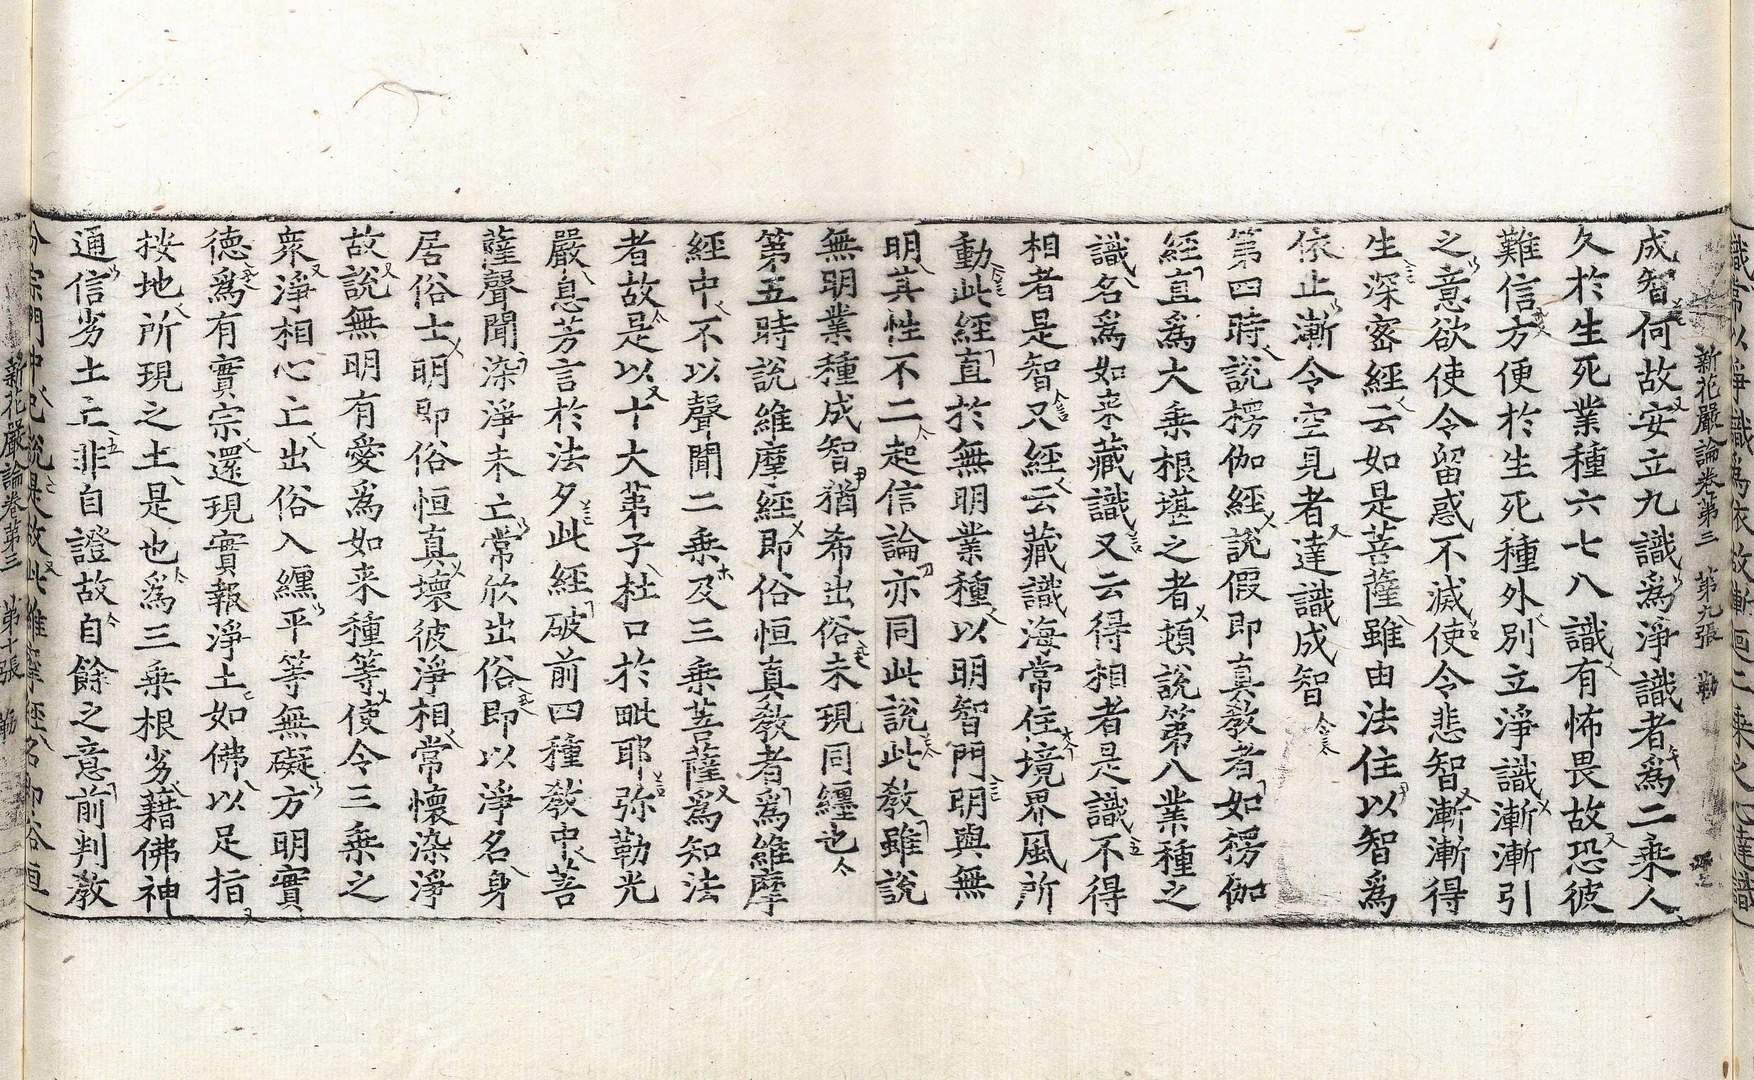 新花嚴論卷第三 第九張 勒
成智何故安立九識爲淨識者爲二乘人
久於生死業種六七八識有怖畏故恐彼
難信方便於生死種外別立淨識漸漸引
之意欲使令留惑不滅使令悲智漸漸得
生深密經云如是菩薩雖由法住以智爲
依止漸令空見者達識成智
第四時說楞伽經說假即真教者如楞伽
經直爲大乘根堪之者頓說第八業種之
識名爲如来藏識又云得相者是識不得
相者是智又經云藏識海常住境界風所
動此經直於無明業種以明智門明與無
明其性不二起信論亦同此說此教雖說
無明業種成智猶希出俗未現同纏也
第五時說維摩經即俗恒真教者爲維摩
經中不以聲聞二乘及三乘菩薩爲知法
者故是以十大第子杜口於毗耶弥勒光
嚴息芳言於法夕此經破前四種教中菩
薩聲聞染淨未亡常欣出俗即以淨名身
居俗士明即俗恒真壞彼淨相常懷染淨
故說無明有愛爲如来種等使令三乘之
衆淨相心亡出俗入纏平等無礙方明實
德爲有實宗還現實報淨土如佛以足指
按地所現之土是也爲三乘根劣藉佛神
通信劣土亡非自證故自餘之意前判教
分宗門中已說是故此維摩經名即俗恒
新花嚴論卷第三 第十張 勒